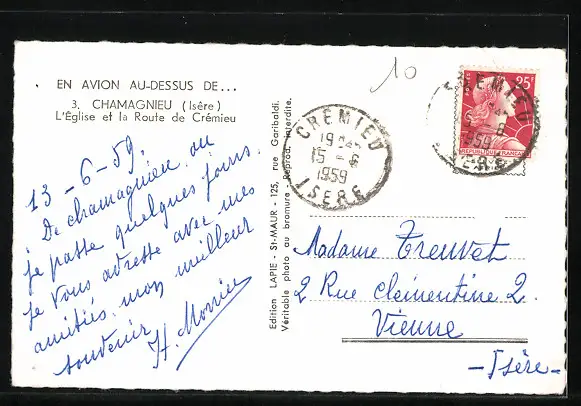 EN AVION AU-DESSUS DE...
3. CHAMAGNIEU (Isère)
L'Église et la Route de Crémieu
10
13-6-59.
De chamagnieu ou
je passe quelques jours.
je vous adresse avec mes
amitiés, mon meilleur
souvenir
Edition LAPIE - St-MAUR - 125, rue Garibaldi.
Véritable photo au bromure - Reprod. interdite.
CREMIEU
15 - 6
1959
ISERE
25F
POSTES
REPUBLIQUE FRANÇAISE
CREMIEU
1959
ISERE
Madame Treuvet
2 Rue clémentine 2.
Vienne
-Isère-